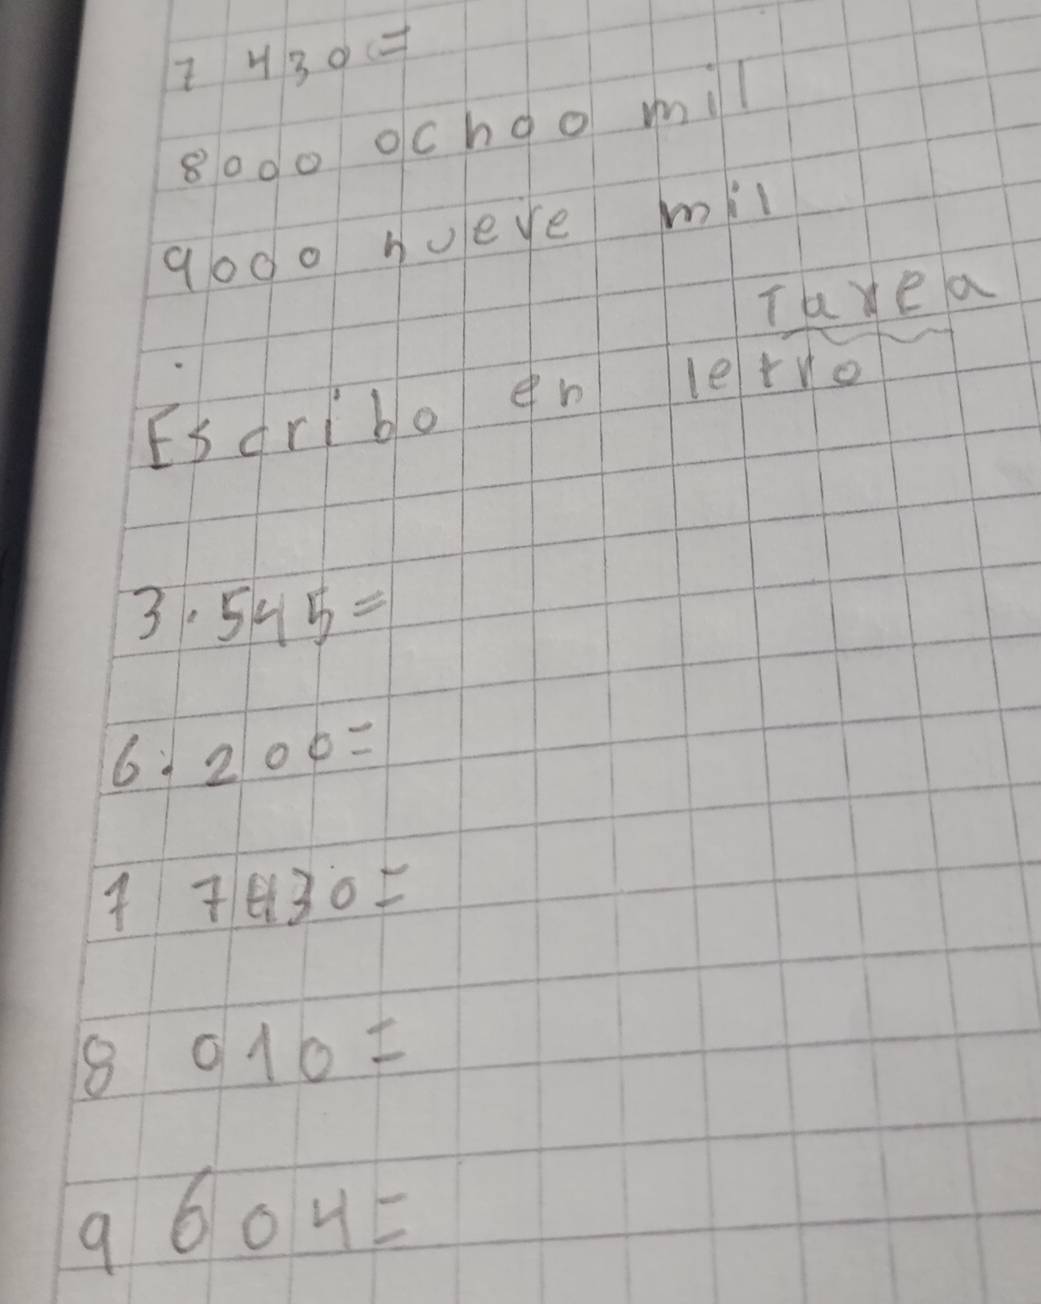 7 430=
8000 ochoo mil
9000 nueve mil
Tarea
Escribo en letro
3.545=
6.200=
7 7430=
8 010=
9 604=